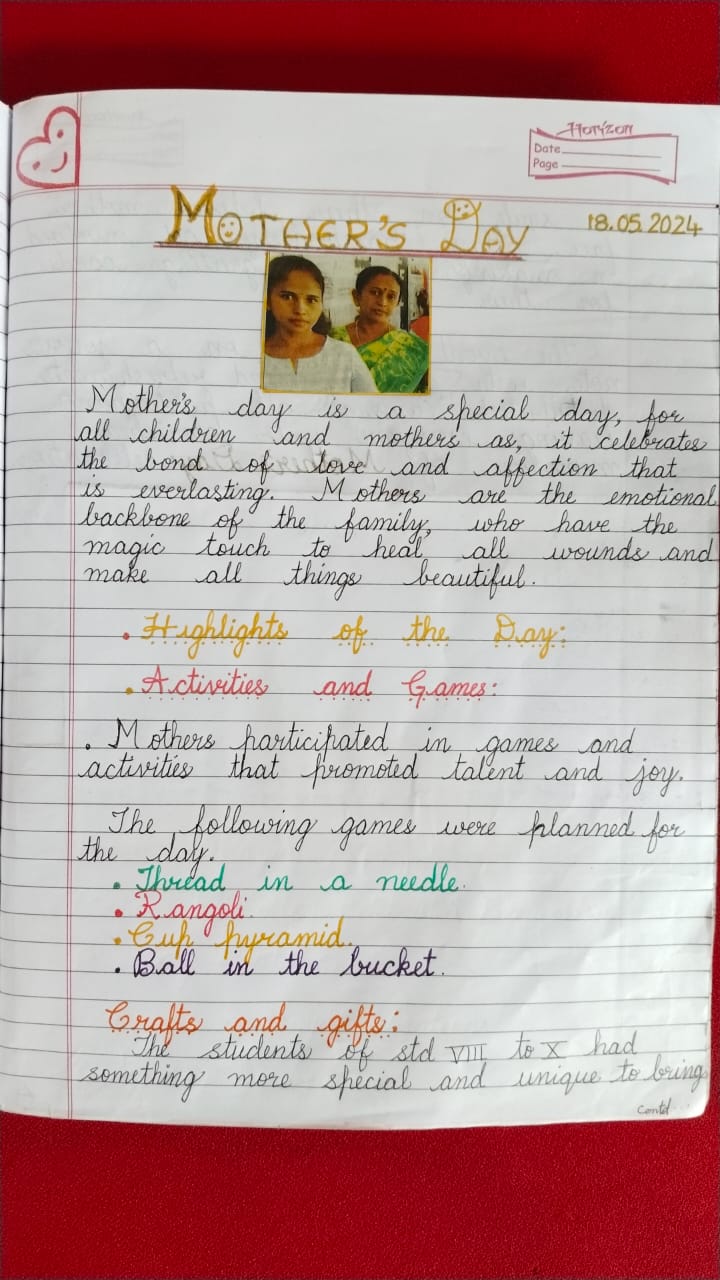 Horizon
Date
Page
MOTHER'S DAY
18.05.2024
Mother's day is a special day, for
all children and mothers as, it celebrates
the bond of love and affection that
is everlasting. Mothers are the emotional
backbone of the family, who have the
magic touch to heal all wounds and
make all things beautiful.
• Highlights of the Day:
• Activities and Games:
. Mothers participated in games and
activities that promoted talent and joy.
The following games were planned for
the day.
• Thread in a needle.
• Rangoli.
• Cup pyramid.
• Ball in the bucket.
Crafts and gifts:
The students of std VIII to X had
something more special and unique to bring
Contd...